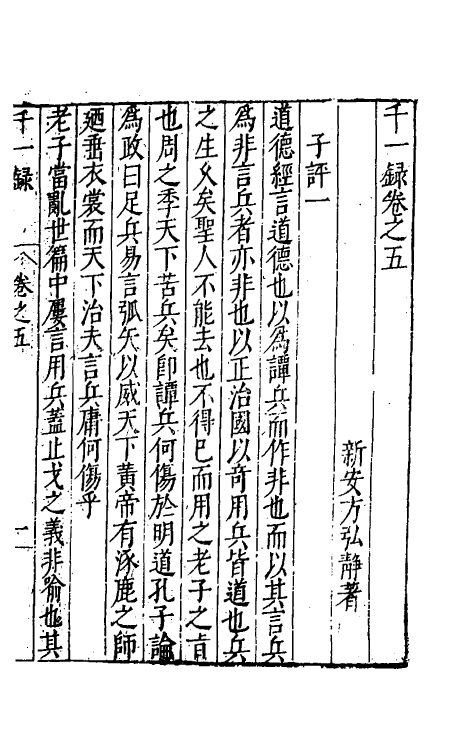 千一録卷之五
新安方弘靜著
子評一
道德經言道德也以爲譚兵而作非也而以其言兵
爲非言兵者亦非也以正治國以奇用兵皆道也兵
之生久矣聖人不能去也不得已而用之老子之旨
也周之季天下苦兵矣卽譚兵何傷於明道孔子論
爲政曰足兵易言弧矢以威天下黄帝有涿鹿之師
廼垂衣裳而天下治夫言兵庸何傷乎
老子當亂世篇中屢言用兵蓋止戈之義非喻也其
千一録 卷之五 一